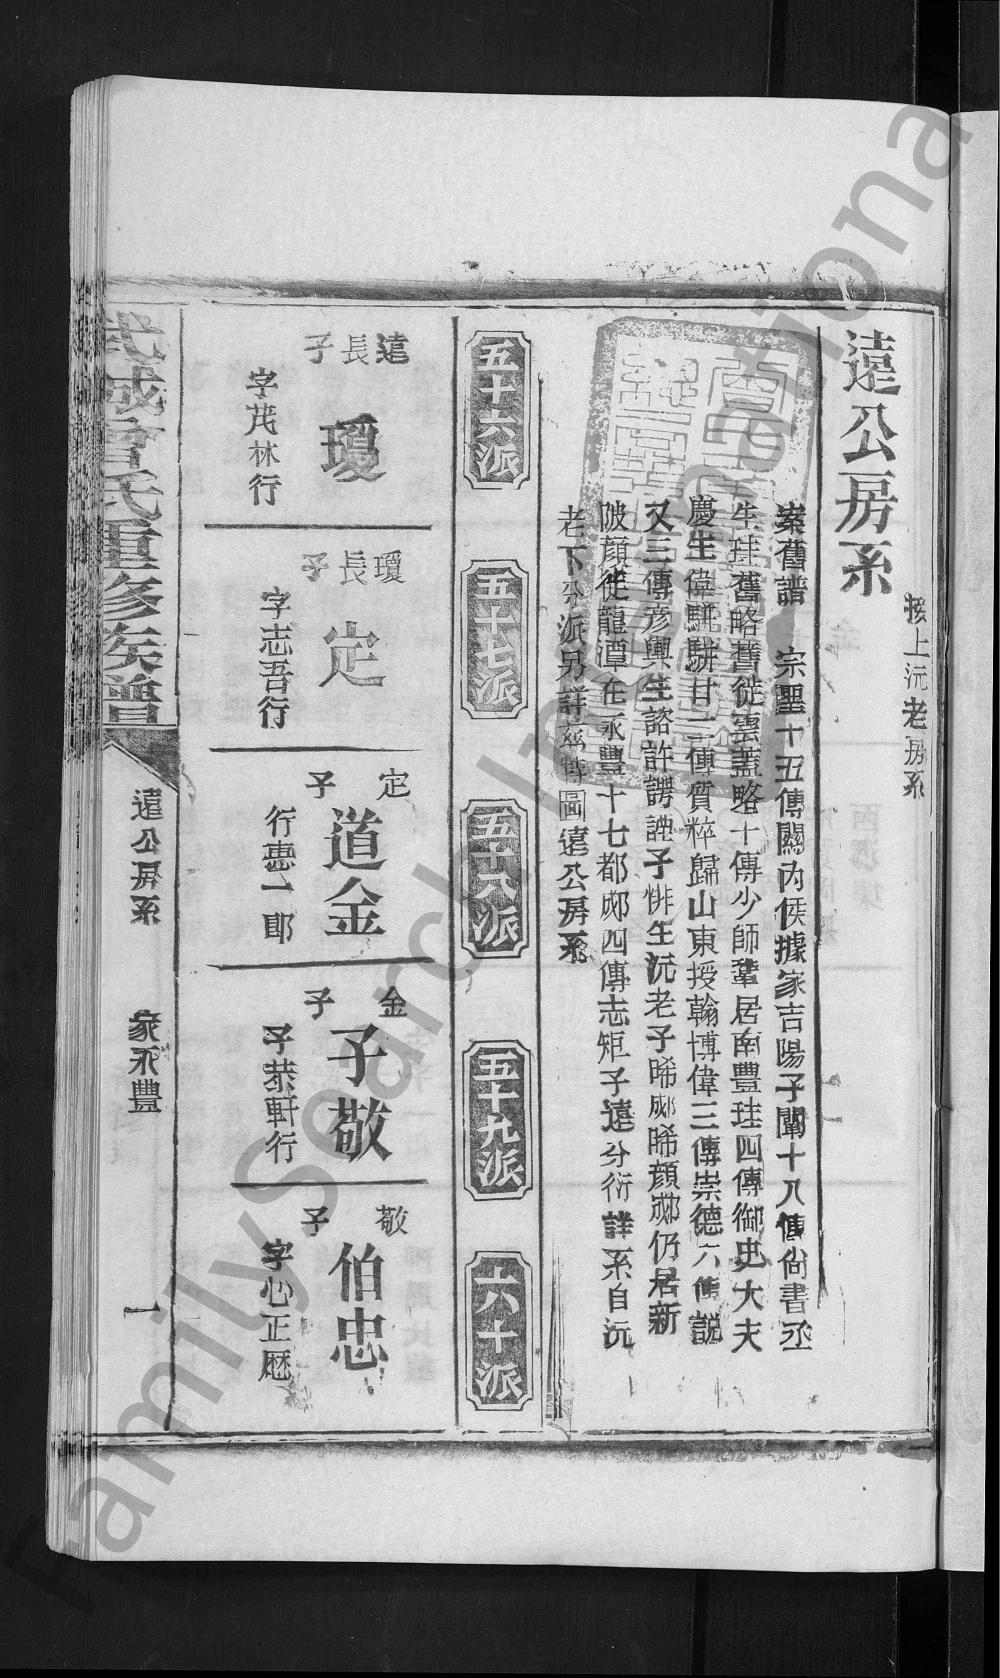 遠公房系
接上沅老房系
案舊譜 宗聖十五傳關內侯據家吉陽子闡十八傳尙書丞
生珪舊略舊徙雲蓋略十傳少師鞏居南豐珪四傳御史大夫
慶生偉駣騈甘二傳質粹歸山東授翰博偉三傳崇德六傳說
又三傳彥輿生諮許諤 子悱生沅老子晞 晞顔 仍居新
陂顔徙龍潭在永豐十七都 四傳志矩子遠分衍詳系自沅
老下分派另詳茲特圖遠公房系
五十六派
五十七派
五十八派
五十九派
六十派
遠長子
瓊
字茂林行
瓊長子
定
字志吾行
定子
道金
行 一郎
金子
子敬
子恭軒行
敬子
伯忠
字心正歷
武城曾氏重修族譜
遠公房系
家永豐
一
FamilySearch International